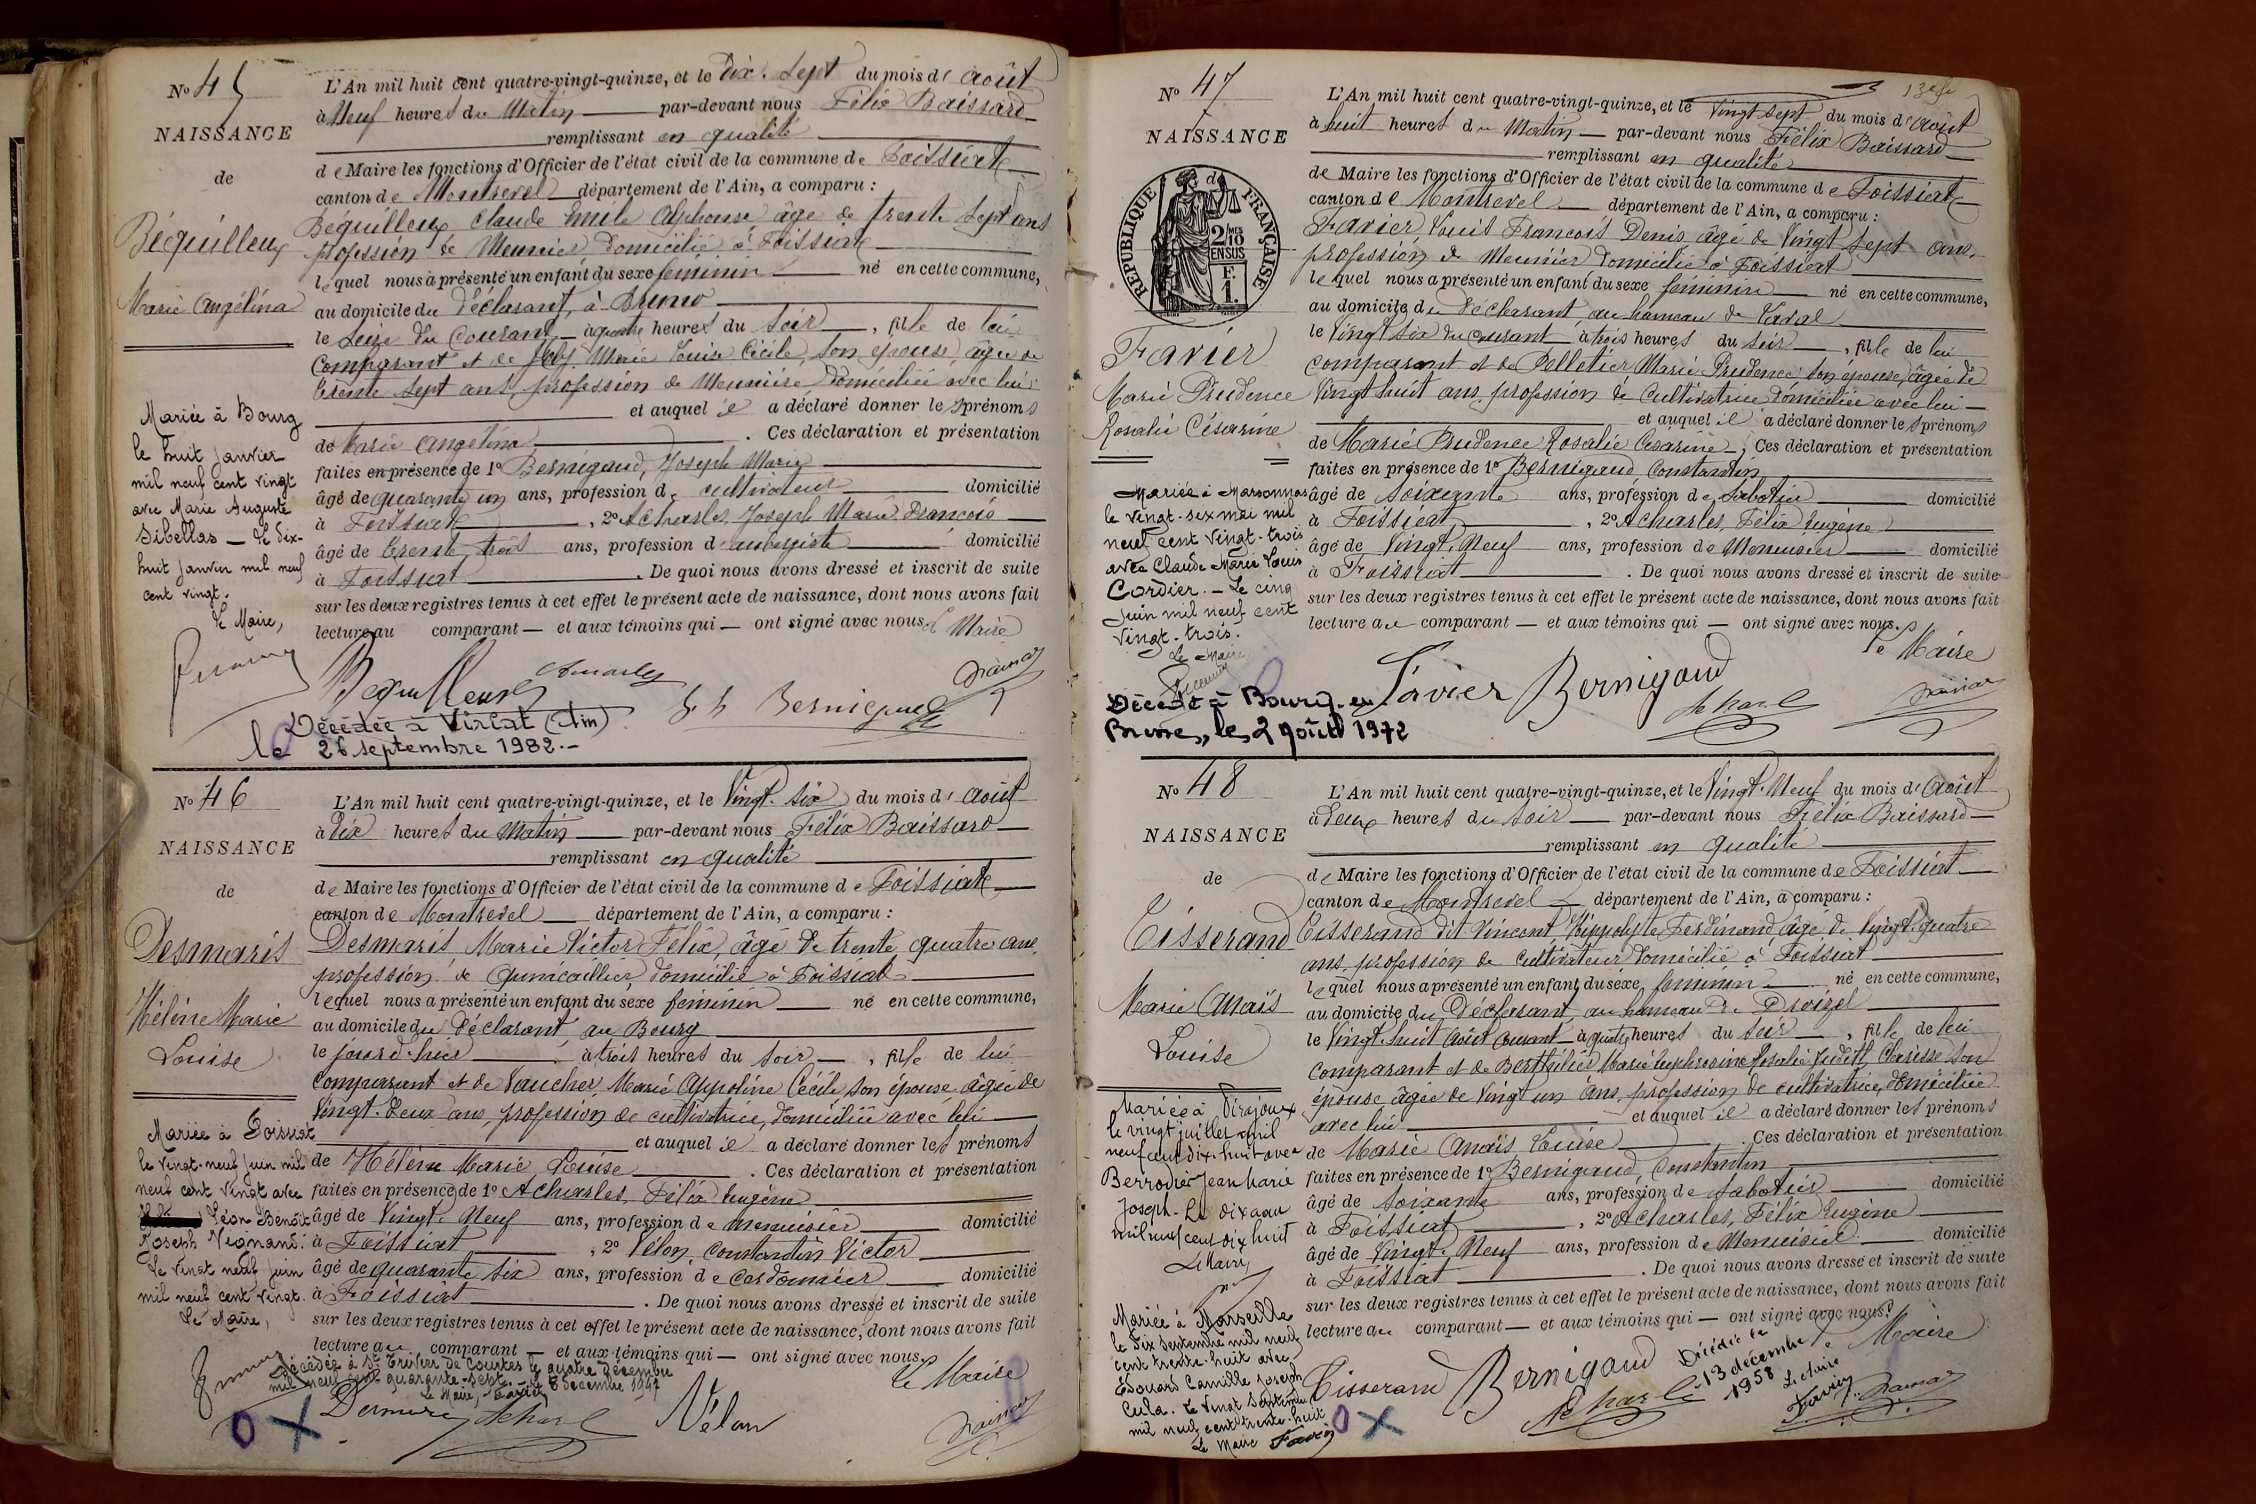 No 45
NAISSANCE
de
Béquilleux
Marie Angélina
Mariée à Bourg
le huit janvier
mil neuf cent vingt
avec Marie Auguste
Sibellas — Le dix-
huit janvier mil neuf
cent vingt.
Le Maire,
L'An mil huit cent quatre-vingt-quinze, et le Dix-sept du mois d'août
à Neuf heures du Matin par-devant nous Félix Baissard
remplissant en qualité
de Maire les fonctions d'Officier de l'état civil de la commune de Foissiat
canton de Montrevel département de l'Ain, a comparu :
Béquilleux Claude Emile Alphonse âgé de trente sept ans
profession de Meunier domicilié à Foissiat
lequel nous a présenté un enfant du sexe féminin né en cette commune,
au domicile du déclarant, à
le seize du courant à quatre heures du soir, fille de lui
comparant et de Marie Louise Cécile, son épouse, âgée de
trente sept ans, profession de Meunière domiciliée avec lui
et auquel il a déclaré donner les prénoms
de Marie Angélina. Ces déclaration et présentation
faites en présence de 1o Bernigaud, Joseph Marie
âgé de quarante un ans, profession de cultivateur domicilié
à Foissiat, 2o Acharles, Joseph Marie François
âgé de trente trois ans, profession d'aubergiste domicilié
à Foissiat. De quoi nous avons dressé et inscrit de suite
sur les deux registres tenus à cet effet le présent acte de naissance, dont nous avons fait
lecture au comparant — et aux témoins qui — ont signé avec nous. Le Maire
Décédée à Viriat (Ain)
le 26 septembre 1982.-
No 46
NAISSANCE
de
Desmaris
Hélène Marie
Louise
Mariée à Foissiat
le vingt-neuf juin mil
neuf cent vingt avec
Léon Benoît
Joseph Vegnand.
Le vingt neuf juin
mil neuf cent vingt.
Le Maire,
L'An mil huit cent quatre-vingt-quinze, et le Vingt-six du mois d'août
à Dix heures du Matin par-devant nous Félix Baissard
remplissant en qualité
de Maire les fonctions d'Officier de l'état civil de la commune de Foissiat
canton de Montrevel département de l'Ain, a comparu :
Desmaris Marie Victor Félix, âgé de trente quatre ans
profession de quincaillier, domicilié à Foissiat
lequel nous a présenté un enfant du sexe féminin né en cette commune,
au domicile du déclarant, au Bourg
le jour d'hier à trois heures du soir, fille de lui
comparant et de Vaucher, Marie Appoline Cécile son épouse âgée de
vingt-deux ans, profession de cultivatrice, domiciliée avec lui
et auquel il a déclaré donner les prénoms
de Hélène Marie Louise. Ces déclaration et présentation
faites en présence de 1o Acharles, Félix Eugène
âgé de vingt-neuf ans, profession de menuisier domicilié
à Foissiat, 2o Vélon, Constantin Victor
âgé de quarante six ans, profession de cordonnier domicilié
à Foissiat. De quoi nous avons dressé et inscrit de suite
sur les deux registres tenus à cet effet le présent acte de naissance, dont nous avons fait
lecture au comparant — et aux témoins qui — ont signé avec nous.
Le Maire
Décédée à St Trivier de Courtes le quatre décembre
mil neuf cent quarante-sept. - le 8 décembre 1947
Le Maire, Favier
Vélon
No 47
NAISSANCE
REPUBLIQUE FRANÇAISE
2/10 MES
EN SUS
F.
1.
Favier
Marie Prudence
Rosalie Césarine
Mariée à Marsonnas
le vingt-six mai mil
neuf cent vingt-trois
avec Claude Marie Louis
Cordier. - Le cinq
juin mil neuf cent
vingt-trois.
Le Maire
L'An mil huit cent quatre-vingt-quinze, et le Vingt sept du mois d'août
à huit heures du Matin par-devant nous Félix Baissard
remplissant en qualité
de Maire les fonctions d'Officier de l'état civil de la commune de Foissiat
canton de Montrevel département de l'Ain, a comparu :
Favier, Louis François Denis âgé de Vingt Sept ans,
profession de Meunier domicilié à Foissiat
lequel nous a présenté un enfant du sexe féminin né en cette commune,
au domicile du déclarant, au hameau de Laval
le Vingt six du courant à trois heures du soir, fille de lui
comparant et de Pelletier Marie Prudence son épouse, âgée de
Vingt huit ans, profession de cultivatrice domiciliée avec lui
et auquel il a déclaré donner les prénoms
de Marie Prudence Rosalie Césarine. Ces déclaration et présentation
faites en présence de 1o Bernigaud Constantin
âgé de soixante ans, profession de sabotier domicilié
à Foissiat, 2o Acharles, Félix Eugène
âgé de Vingt-Neuf ans, profession de Menuisier domicilié
à Foissiat. De quoi nous avons dressé et inscrit de suite
sur les deux registres tenus à cet effet le présent acte de naissance, dont nous avons fait
lecture au comparant — et aux témoins qui — ont signé avec nous.
Le Maire
Favier Bernigaud
Décédée à Bourg-en
Bresse, le 2 août 1972
No 48
NAISSANCE
de
Tisserand
Marie Anaïs
Louise
Mariée à Virajoux
le vingt juillet mil
neuf cent dix-huit avec
Berrodier Jean Marie
Joseph. Le dix août
mil neuf cent dix huit
Le Maire,
Mariée à Marseille
le dix septembre mil neuf
cent trente-huit avec
Edouard Camille Joseph
Cula. Le vingt septembre
mil neuf cent trente-huit
Le Maire Favier
L'An mil huit cent quatre-vingt-quinze, et le Vingt-Neuf du mois d'août
à deux heures du soir par-devant nous Félix Baissard
remplissant en qualité
de Maire les fonctions d'Officier de l'état civil de la commune de Foissiat
canton de Montrevel département de l'Ain, a comparu :
Tisserand dit Vincent Hippolyte Ferdinand âgé de Vingt-quatre
ans, profession de cultivateur domicilié à Foissiat
lequel nous a présenté un enfant du sexe féminin né en cette commune,
au domicile du déclarant, au hameau de
le Vingt-huit août courant à quatre heures du soir, fille de lui
comparant et de Berthilier Marie Euphrosine Rosalie Judith Clarisse son
épouse âgée de vingt un ans, profession de cultivatrice, domiciliée
avec lui et auquel il a déclaré donner les prénoms
de Marie Anaïs Louise. Ces déclaration et présentation
faites en présence de 1o Bernigaud, Constantin
âgé de soixante ans, profession de sabotier domicilié
à Foissiat, 2o Acharles, Félix Eugène
âgé de Vingt-Neuf ans, profession de Menuisier domicilié
à Foissiat. De quoi nous avons dressé et inscrit de suite
sur les deux registres tenus à cet effet le présent acte de naissance, dont nous avons fait
lecture au comparant — et aux témoins qui — ont signé avec nous.
Le Maire
Tisserand Bernigaud
Décédée le
13 décembre
1958
Le Maire
Favier